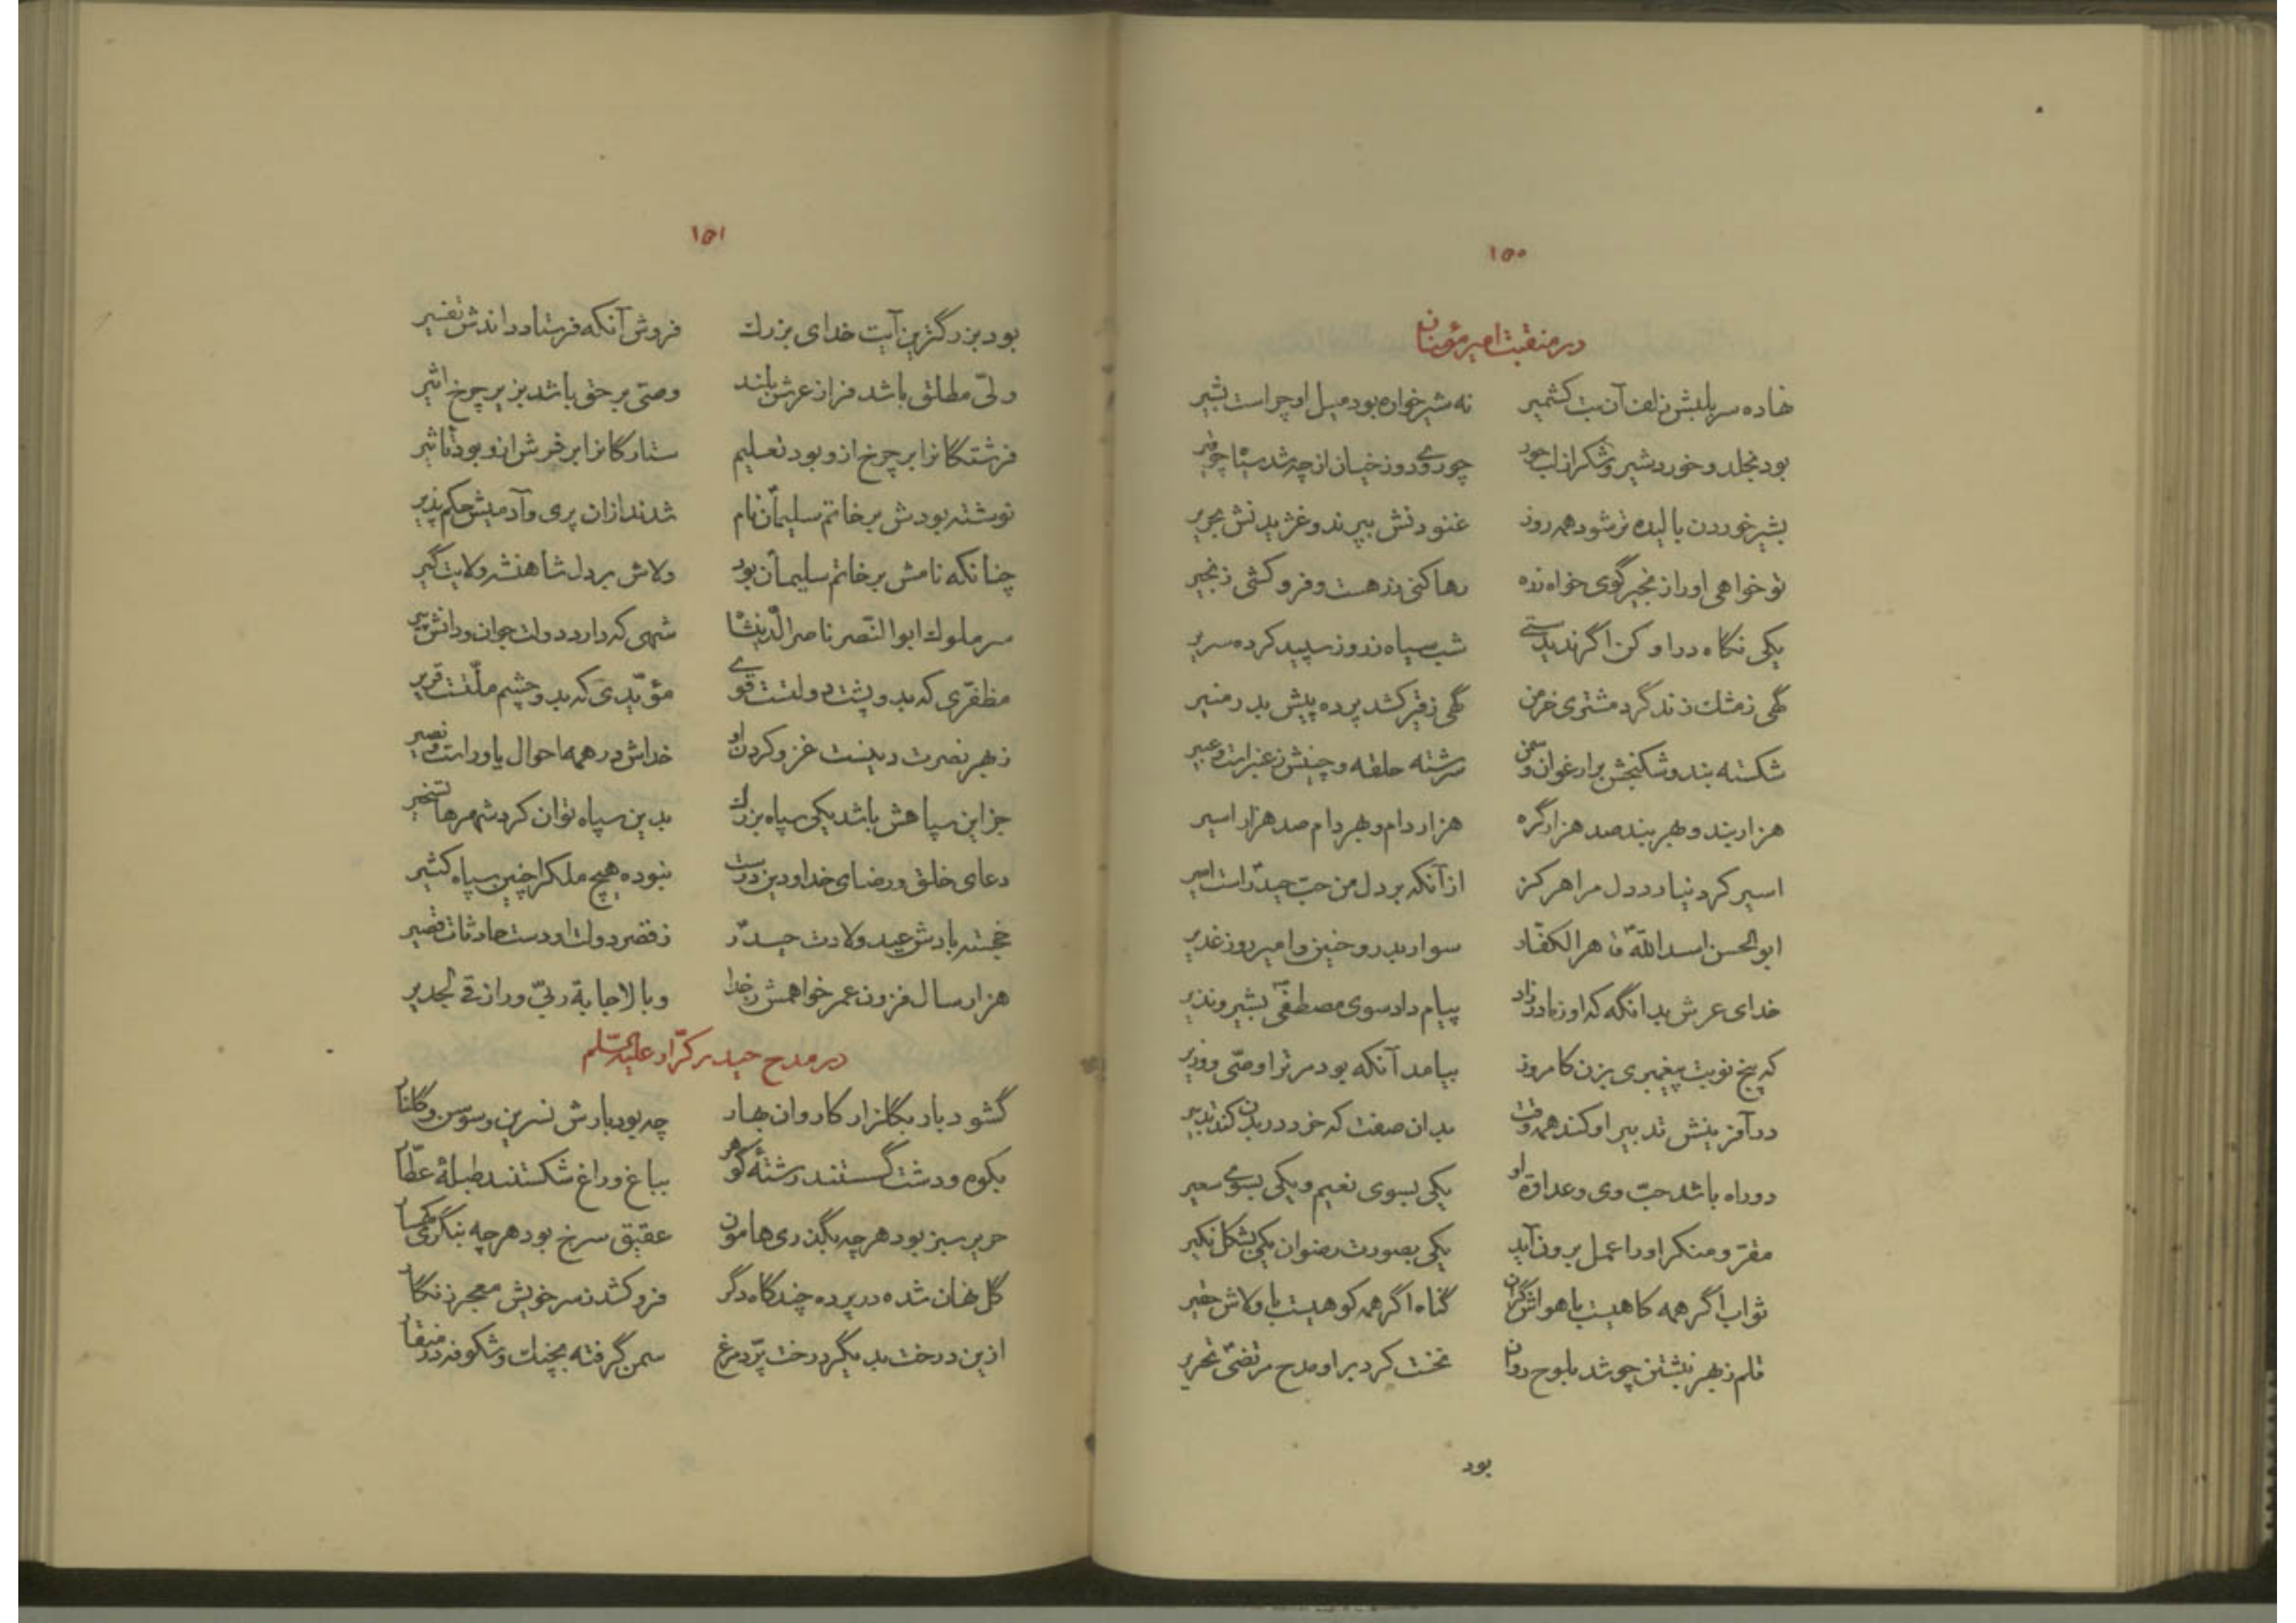 ۱۵۰
در منقبت امیر مؤمنان
نهاده سر بلبش زلف آن بت کشمیر نه شیرخواره بود میل او چراست بشیر
بود بخلد و خورد شیر و شکر از لب حور چو روی دوزخیان از چه شد سیاه چو قیر
بشیر خوردن بالیده تر شود همه روز غنودنش بپرند و غژیدنش بحریر
تو خواهی او را زنجیر گوی خواه زره رها کنی زرهست و فرو کشی زنجیر
یکی نگاه در او کن اگر ندیدستی شب سیاه ز روز سپید کرده سریر
گهی ز مشک زند گرد مشتری خرمن گهی ز قیر کشد پرده پیش بدر منیر
شکسته بند و شکنجش بر ارغوان و سمن سرشته حلقه و چینش ز عنبر است و عبیر
هزار بند و بهر بند صد هزار گره هزار دام و بهر دام صد هزار اسیر
اسیر کرد نیارد دل مرا هرگز از آنکه بر دل من حب حیدر است امیر
ابوالحسن اسدالله قاهر الکفّار سوار بدر و حنین و امیر روز غدیر
خدای عرش بدانگه که او ز مادر زاد پیام داد سوی مصطفی بشیر و نذیر
که پنج نوبت پیغمبری بزن کامروز بیامد آنکه بود مر ترا وصّی و وزیر
در آفرینش تدبیر او کند همه وقت بدان صفت که خرد در بدن کند تدبیر
دو راه باشد حبّ وی و عداوة او یکی بسوی نعیم و یکی بسوی سعیر
مقرّ و منکر او را عمل برون آید یکی بصورت رضوان یکی بشکل نکیر
ثواب اگر همه کاهیست با هواش گران گناه اگر همه کوهیست با ولاش حقیر
قلم ز بهر نبشتن چو شد بلوح روان نخست کرد بر او مدح مرتضی تحریر
بود
۱۵۱
بود بزرگترین آیت خدای بزرگ فروش آنکه فرستاد و راندش تفسیر
ولّی مطلق باشد فراز عرش بلند وصّی بر حق باشد بزیر چرخ اثیر
فرشتگانرا بر چرخ ازو بود تعلیم ستارگانرا بر فرش ازو بود تأثیر
نوشته بودش بر خاتم سلیمان نام شدند ازان پری و آدمیش حکم پذیر
چنانکه نامش بر خاتم سلیمان بود ولاش بر دل شاهنشه ولایت گیر
سر ملوک ابوالنّصر ناصرالدّینشاه شهی که دارد دولت جوان و دانش پیر
مظفّری که بدو پشت دولتست قوی مؤیّدی که بدو چشم ملّتست قریر
ز بهر نصرت دینست غزو کردن او خداش در همه احوال یاور است و نصیر
جز این سپاهش باشد یکی سپاه بزرگ بدین سپاه توان کرد شهرها تسخیر
دعای خلق و رضای خدا و دین درست نبوده هیچ ملکرا چنین سپاه کثیر
خجسته بادش عید ولادت حیدر ز قصر دولت او دست حادثات قصیر
هزار سال فزون عمر خواهمش ز خدا و بالاجابة ربّی و رازقی لجدیر
در مدح حیدر کرّار علیه السّلم
گشود بار بگلزار کاروان بهار چه بود بارش نسرین و سوسن و گلنار
بکوه و دشت گسستند رشتهٔ گوهر بباغ و راغ شکستند طبلهٔ عطّار
حریر سبز بود هر چه بگذری هامون عقیق سرخ بود هر چه بنگری کهسار
گل نهان شده در پرده چندگاه دگر فرو کشد ز سر خویش معجر زنگار
ازین درخت بدیگر درخت پرّد مرغ سمن گرفته بچنگ و شکوفه در منقار